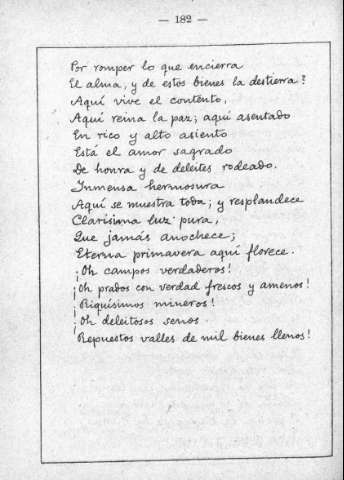 — 182 —
Por romper lo que encierra
El alma, y de estos bienes la destierra?
Aquí vive el contento,
Aquí reina la paz; aquí asentado
En rico y alto asiento
Está el amor sagrado
De honra y de deleites rodeado.
Inmensa hermosura
Aquí se muestra toda; y resplandece
Clarísima luz pura,
Que jamás anochece;
Eterna primavera aquí florece.
¡Oh campos verdaderos!
¡Oh prados con verdad frescos y amenos!
¡Riquísimos mineros!
¡Oh deleitosos senos.
¡Repuestos valles de mil bienes llenos!